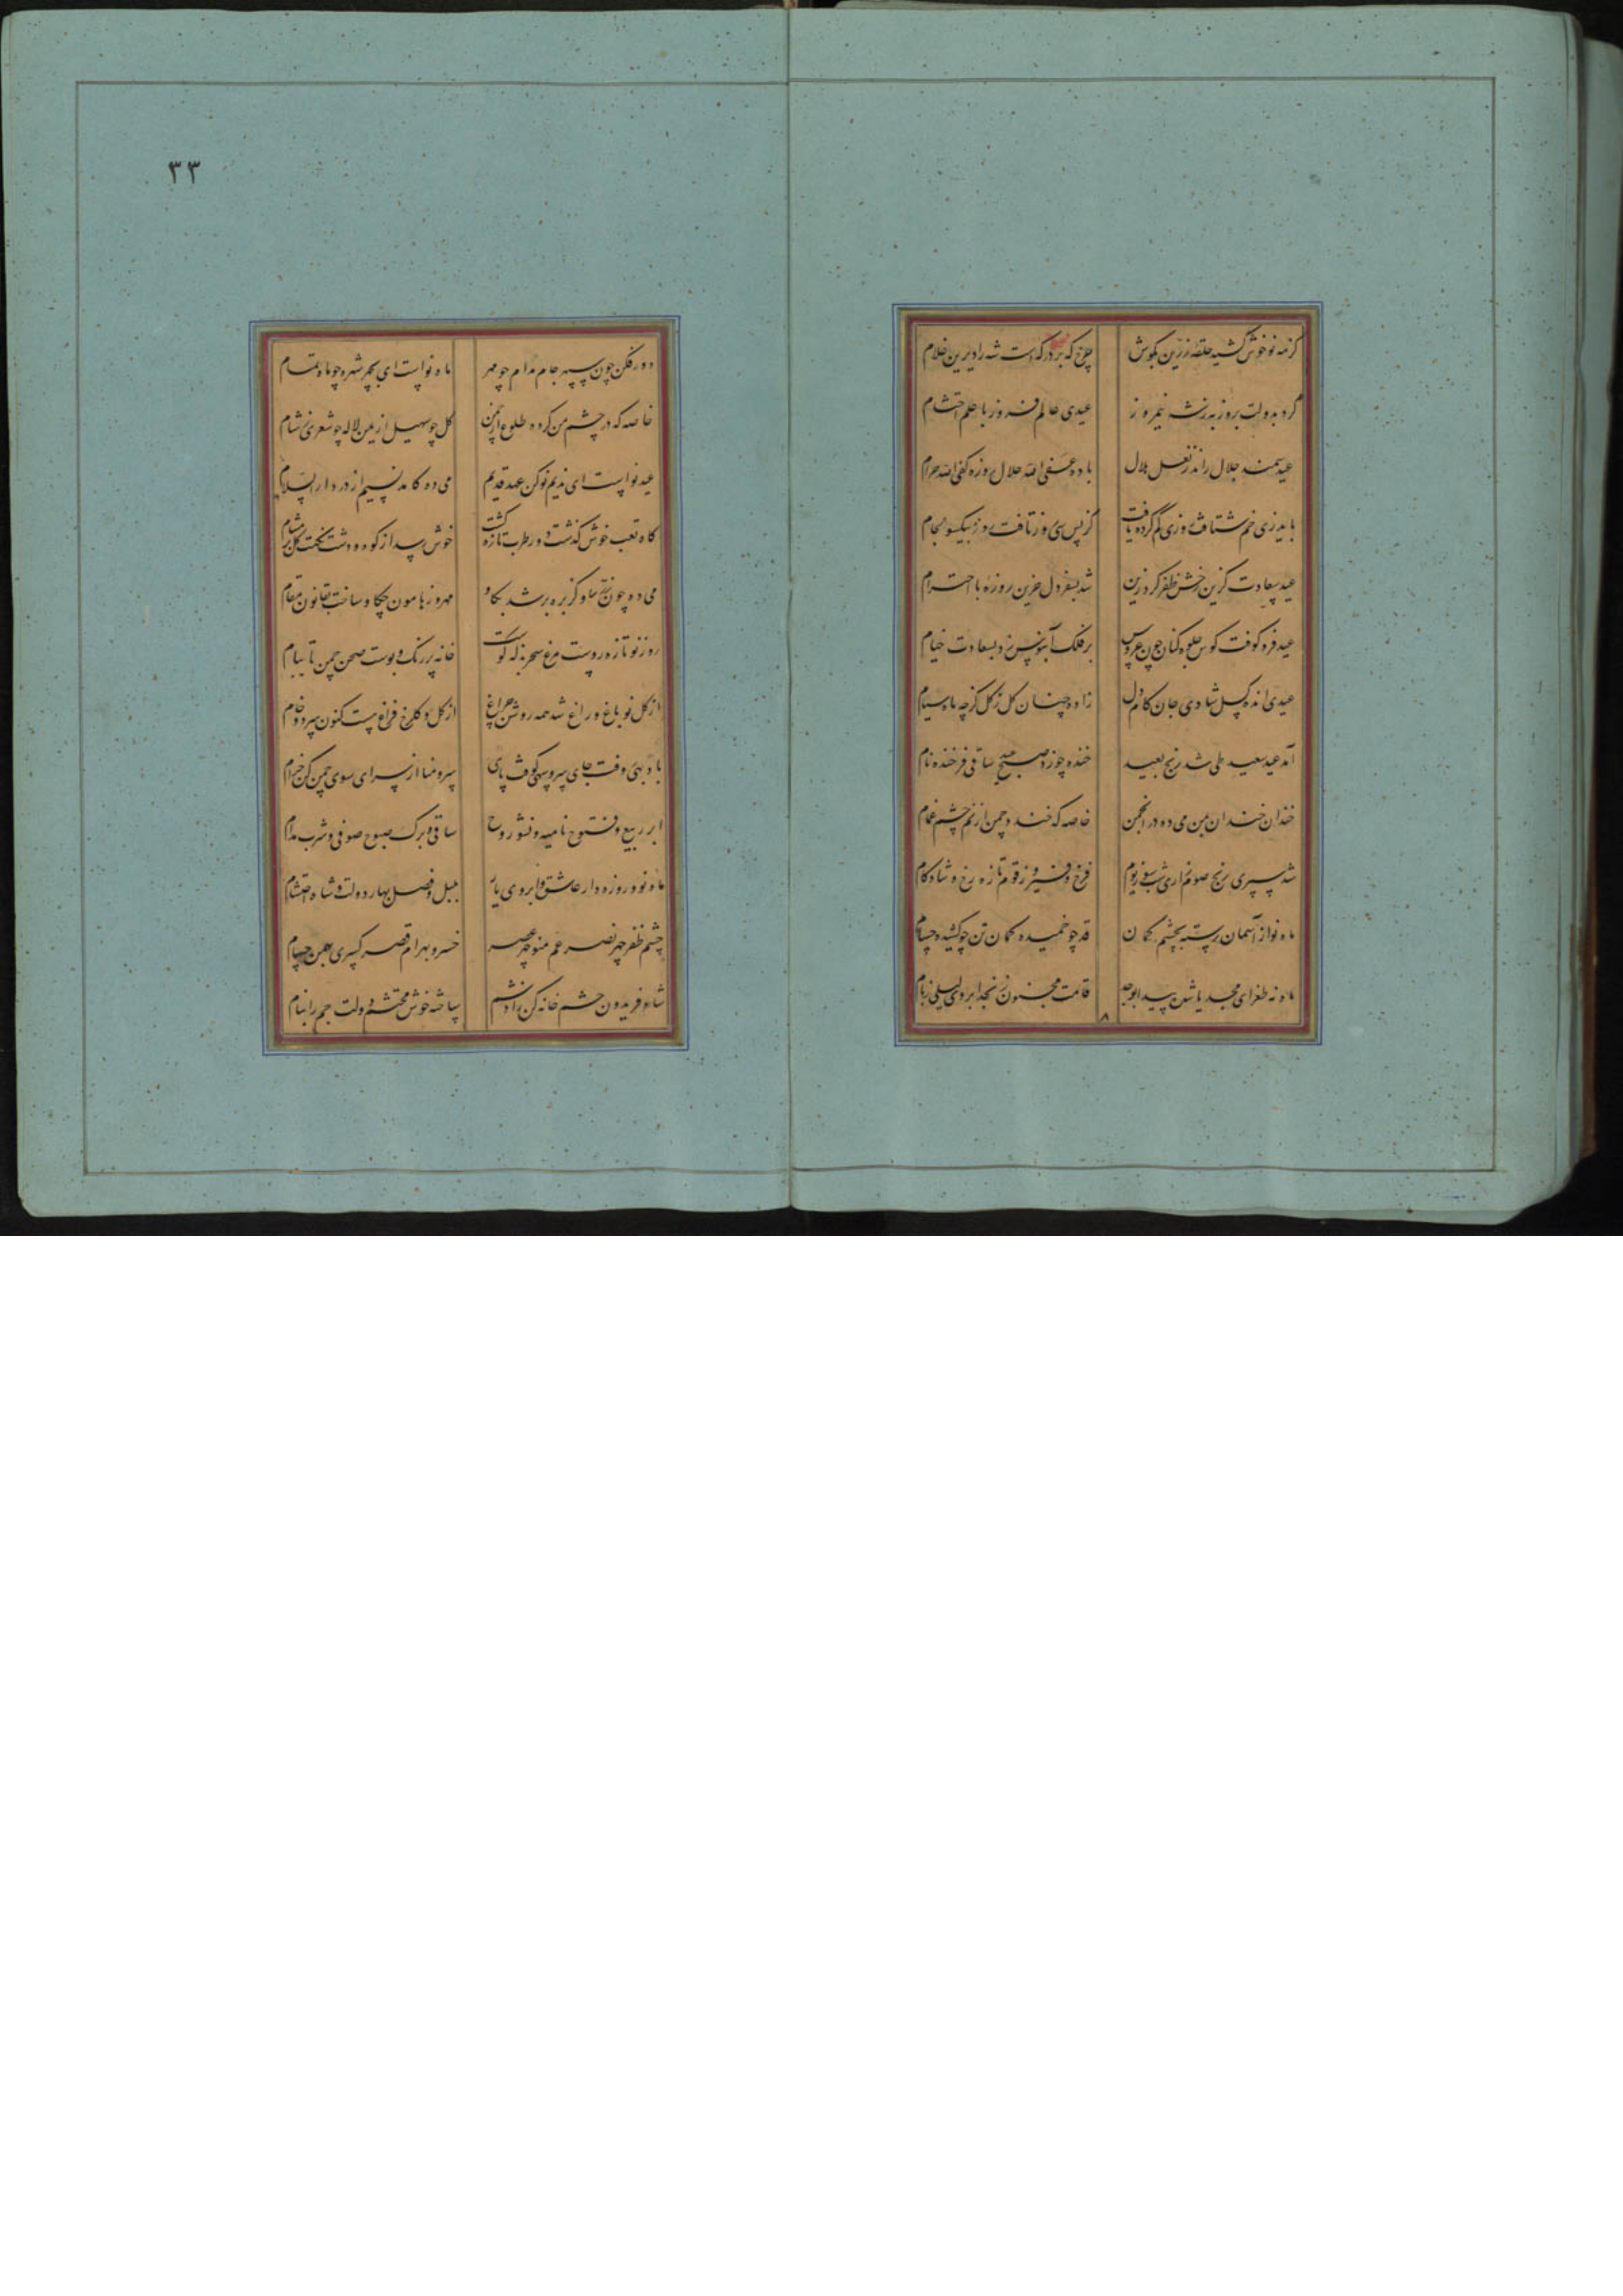 ۳۳
کز مه نو خوش کشیده حلقه زرین بگوش چرخ که بر درگه است شه را دیرین غلام
کرد بدولت بروز بدرنش نیمروز عیدی عالم فروز با علم احتشام
عید سمند جلال راند ز نعل هلال باده عفی الله حلال روزه کفی الله حرام
خم شتافت روزی گم کرده یافت کز پس سی روز تافت روز بیکسو لجام
عید سعادت گزین رخش ظفر کرد زین شد بسفر دل حزین روزه با احترام
عید فرو کوفت کوس جلوه کنان چون عروس بر فلک آبنوس زد بسعادت خیام
عیدی انده گسل شادی جان کام دل زاده چنان گل ز گل گرچه ماه صیام
آمد عید سعید طی شد رنج بعید خنده چو زد صبح عید ساقی فرخنده نام
خندان خندان بمن می ده در انجمن خاصه که خندد چمن از نم چشم غمام
شد سپری رنج صوم فرخ و فیروز قوم تازه رخ و شادکام
ماه نو از آسمان رسته بچشم کمان قد چو خمیده کمان تن چو کشیده حسام
ماه نه طغرای مجد یا شده پیدا بوجد قامت مجنون ز نجد ابروی لیلی ز بام
دور فکن چون سپهر جام مدام چو مهر ماه نو است ای بچهر شهره چو ماه تمام
خاصه که در چشم من کرده طلوع از چمن گل چو سهیل از یمن لاله چو شعری ز شام
عید نو است ای ندیم نو کن عهد قدیم می ده کامد نسیم از در دار السلام
گاه تعب خوش گذشت دور طرب تازه گشت خوش رسد از کوه و دشت نکهت گل بر مشام
می ده چون گاو کز بره بر شد بگاو مهر و ز هامون چکاو ساخت بقانون مقام
روز نو تازه روست مرغ سحر بذله گوست خانه پر رنگ و بوست صحن چمن تا ببام
از گل نو باغ و راغ شد همه روشن چراغ از گل و گلرخ فراغ نیست کنون مرد و خام
با دو سهی وقت جای سرو سهی کوفت پای سرو منا از سرای سوی چمن کن خرام
ابر ربیع و فتوح نامیه و نشو روح ساقی و برگ صبوح صوفی و شرب مدام
ماه نو و روزه دار عاشق و ابروی یار بلبل و فصل بهار دولت و شاه احتشام
چشم ظفر چهر نصر عم منوچهر عصر خسرو بهرام قصر کسری بهمن حسام
شاه فریدون حشم خانه کن سپاهته خوش محتشم دولت جم را نیام